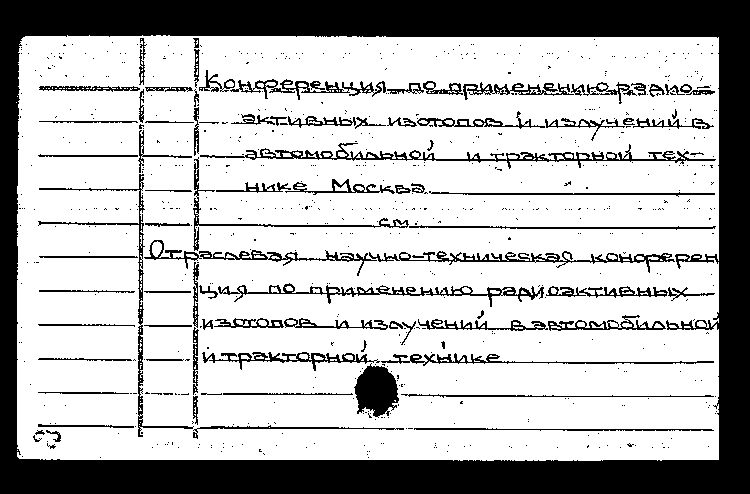 Конференция по применению радио-
активных изотопов и излучений в
автомобильной и тракторной тех-
нике, Москва.
см.
Отраслевая научно-техническая конферен
ция по применению радиоактивных
изотопов и излучений в автомобильной
и тракторной технике